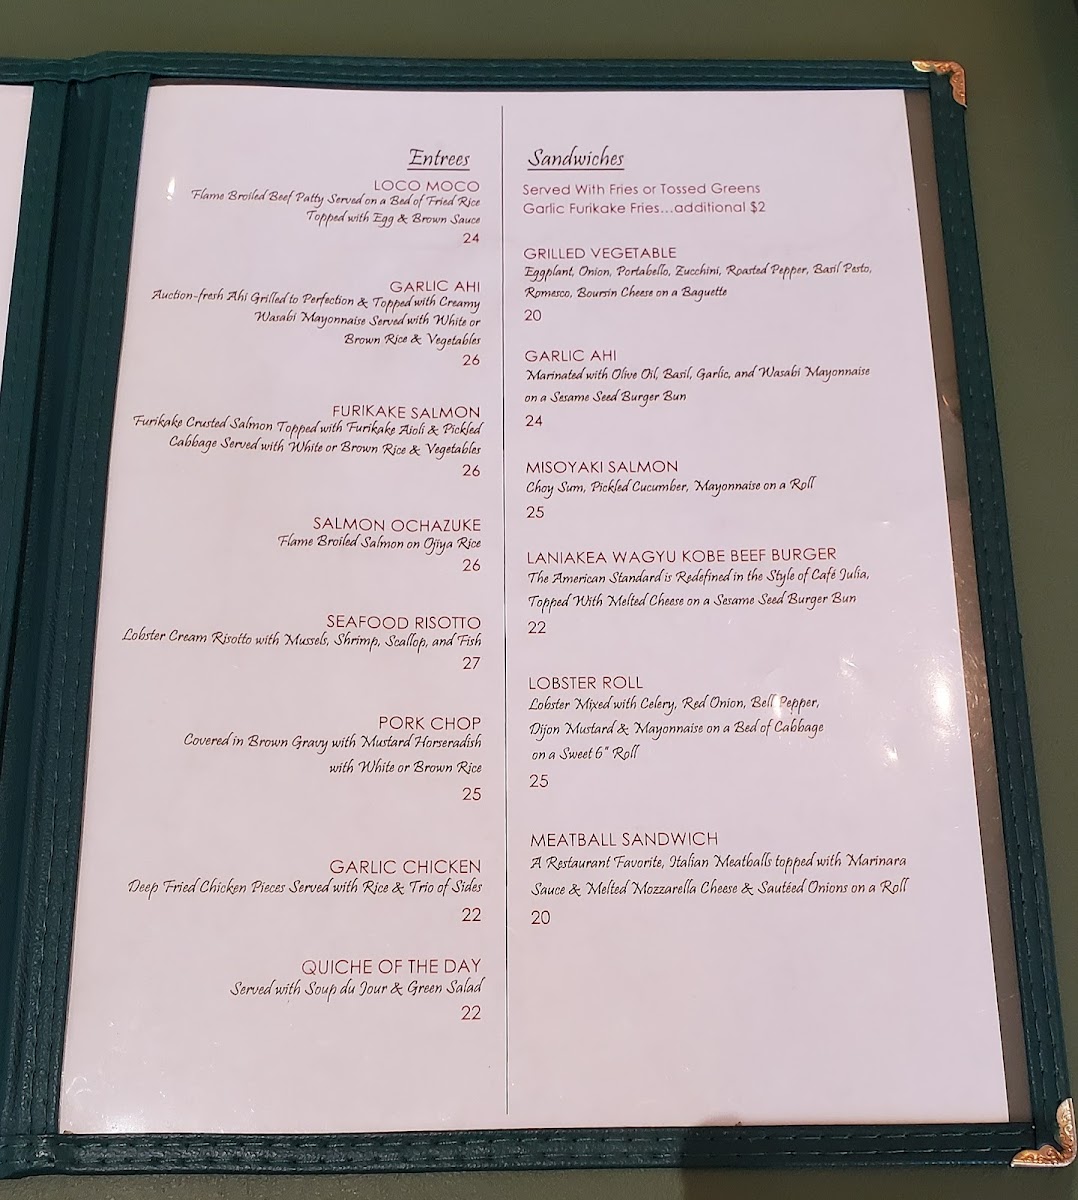 Entrees
LOCO MOCO
Flame Broiled Beef Patty Served on a Bed of Fried Rice
Topped with Egg & Brown Sauce
24
GARLIC AHI
Auction-fresh Ahi Grilled to Perfection & Topped with Creamy
Wasabi Mayonnaise Served with White or
Brown Rice & Vegetables
26
FURIKAKE SALMON
Furikake Crusted Salmon Topped with Furikake Aioli & Pickled
Cabbage Served with White or Brown Rice & Vegetables
26
SALMON OCHAZUKE
Flame Broiled Salmon on Ojiya Rice
26
SEAFOOD RISOTTO
Lobster Cream Risotto with Mussels, Shrimp, Scallop, and Fish
27
PORK CHOP
Covered in Brown Gravy with Mustard Horseradish
with White or Brown Rice
25
GARLIC CHICKEN
Deep Fried Chicken Pieces Served with Rice & Trio of Sides
22
QUICHE OF THE DAY
Served with Soup du Jour & Green Salad
22
Sandwiches
Served With Fries or Tossed Greens
Garlic Furikake Fries...additional $2
GRILLED VEGETABLE
Eggplant, Onion, Portabello, Zucchini, Roasted Pepper, Basil Pesto,
Romesco, Boursin Cheese on a Baguette
20
GARLIC AHI
Marinated with Olive Oil, Basil, Garlic, and Wasabi Mayonnaise
on a Sesame Seed Burger Bun
24
MISOYAKI SALMON
Choy Sum, Pickled Cucumber, Mayonnaise on a Roll
25
LANIAKEA WAGYU KOBE BEEF BURGER
The American Standard is Redefined in the Style of Café Julia,
Topped With Melted Cheese on a Sesame Seed Burger Bun
22
LOBSTER ROLL
Lobster Mixed with Celery, Red Onion, Bell Pepper,
Dijon Mustard & Mayonnaise on a Bed of Cabbage
on a Sweet 6" Roll
25
MEATBALL SANDWICH
A Restaurant Favorite, Italian Meatballs topped with Marinara
Sauce & Melted Mozzarella Cheese & Sautéed Onions on a Roll
20